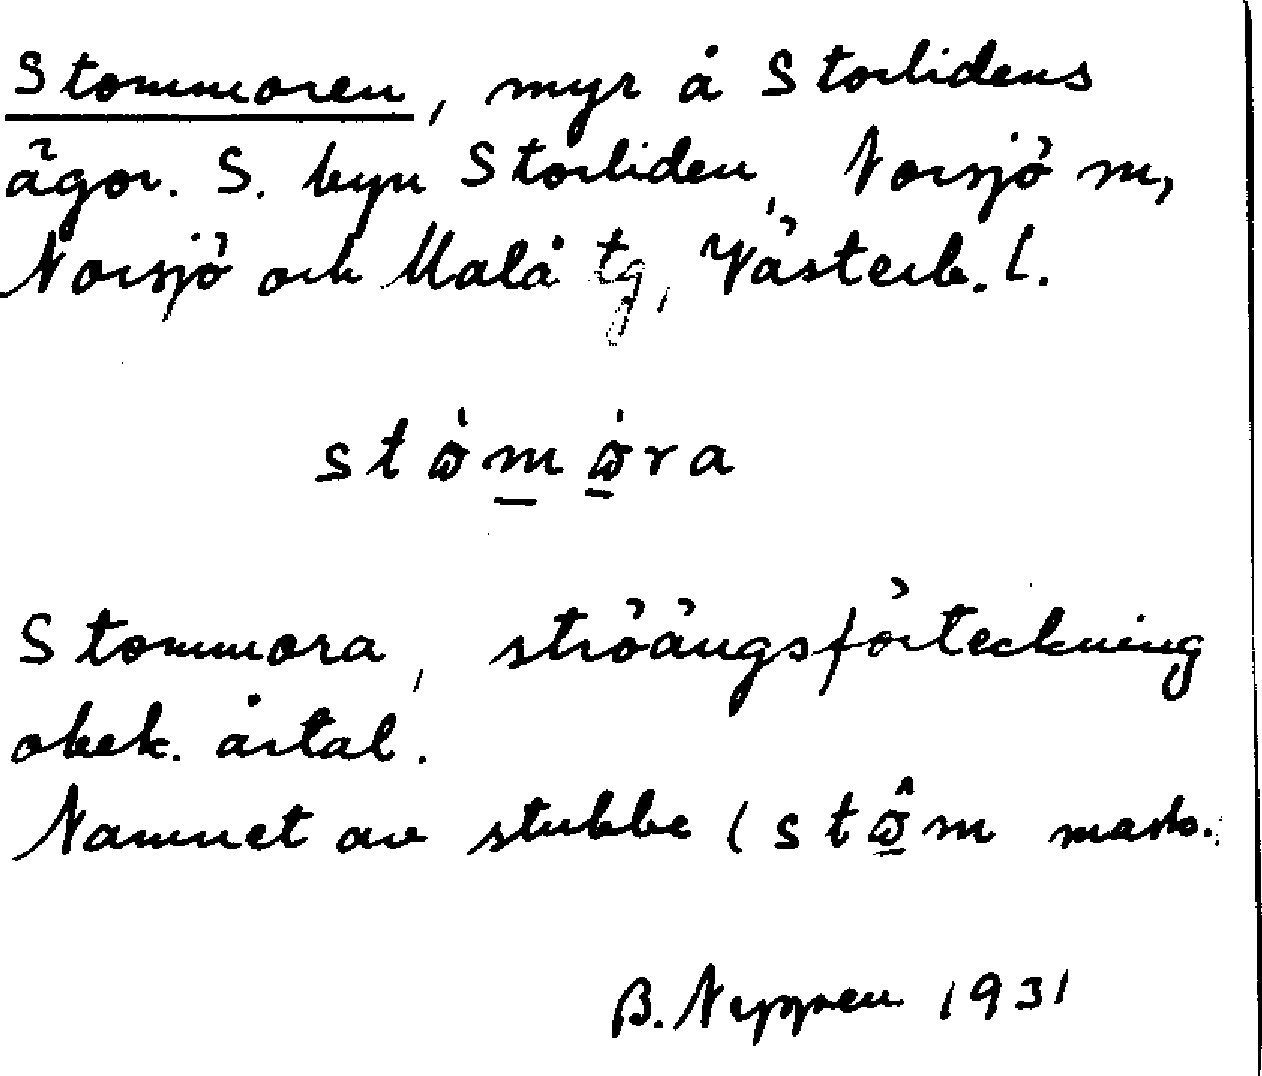 Stommoren, myr å Storlidens
ägor. S. byn Storliden, Norsjö m,
Norsjö och Malå tg, Västerb. l.
Stommora, ströängsförteckning
obek. årtal.
Namnet av stubbe (stɷ̂m mask.
B. Nygren 1931